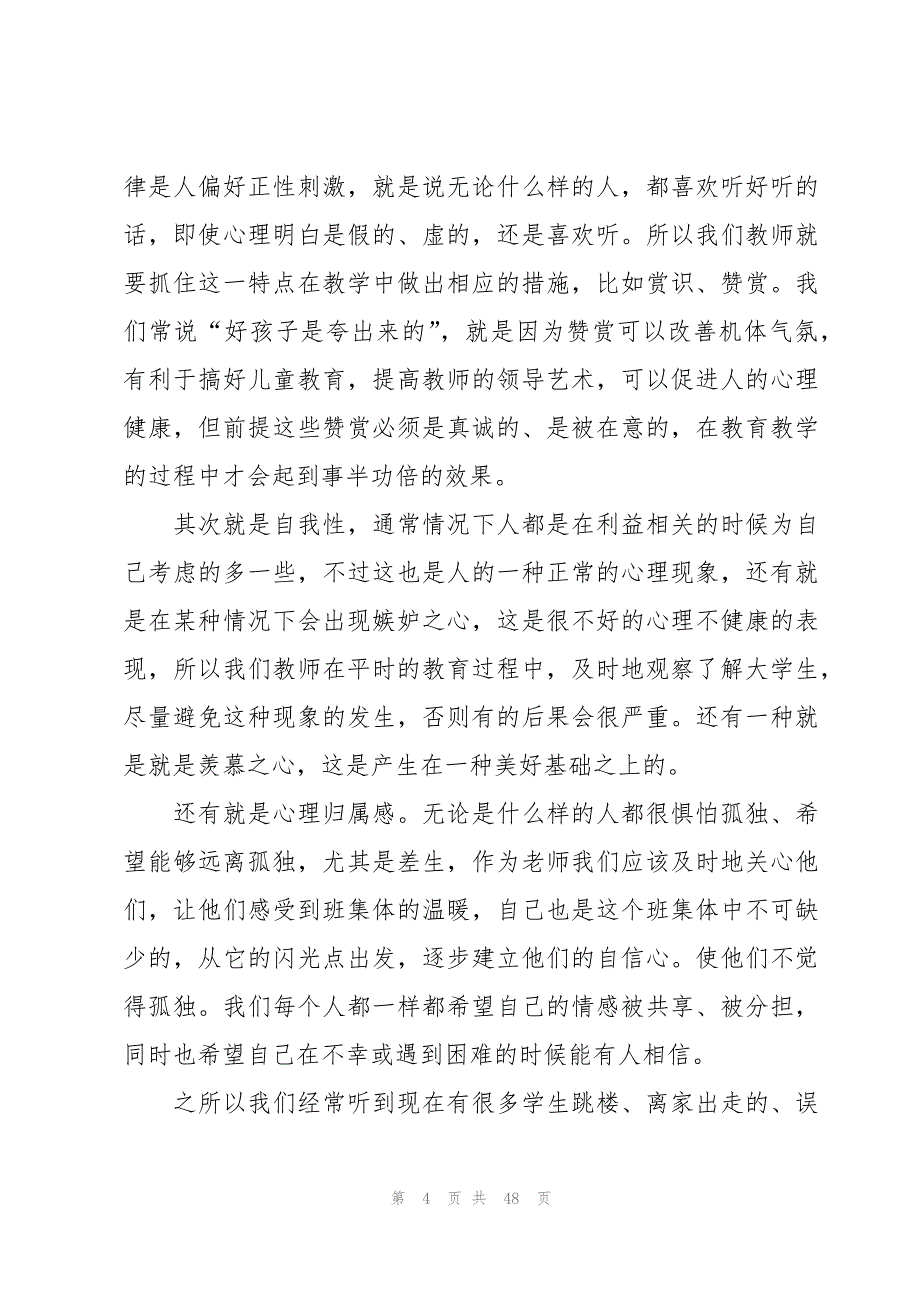 律是人偏好正性刺激，就是说无论什么样的人，都喜欢听好听的
话，即使心理明白是假的、虚的，还是喜欢听。所以我们教师就
要抓住这一特点在教学中做出相应的措施，比如赏识、赞赏。我
们常说“好孩子是夸出来的”，就是因为赞赏可以改善机体气氛，
有利于搞好儿童教育，提高教师的领导艺术，可以促进人的心理
健康，但前提这些赞赏必须是真诚的、是被在意的，在教育教学
的过程中才会起到事半功倍的效果。
其次就是自我性，通常情况下人都是在利益相关的时候为自
己考虑的多一些，不过这也是人的一种正常的心理现象，还有就
是在某种情况下会出现嫉妒之心，这是很不好的心理不健康的表
现，所以我们教师在平时的教育过程中，及时地观察了解大学生，
尽量避免这种现象的发生，否则有的后果会很严重。还有一种就
是就是羡慕之心，这是产生在一种美好基础之上的。
还有就是心理归属感。无论是什么样的人都很惧怕孤独、希
望能够远离孤独，尤其是差生，作为老师我们应该及时地关心他
们，让他们感受到班集体的温暖，自己也是这个班集体中不可缺
少的，从它的闪光点出发，逐步建立他们的自信心。使他们不觉
得孤独。我们每个人都一样都希望自己的情感被共享、被分担，
同时也希望自己在不幸或遇到困难的时候能有人相信。
之所以我们经常听到现在有很多学生跳楼、离家出走的、误
第 4 页 共 48 页